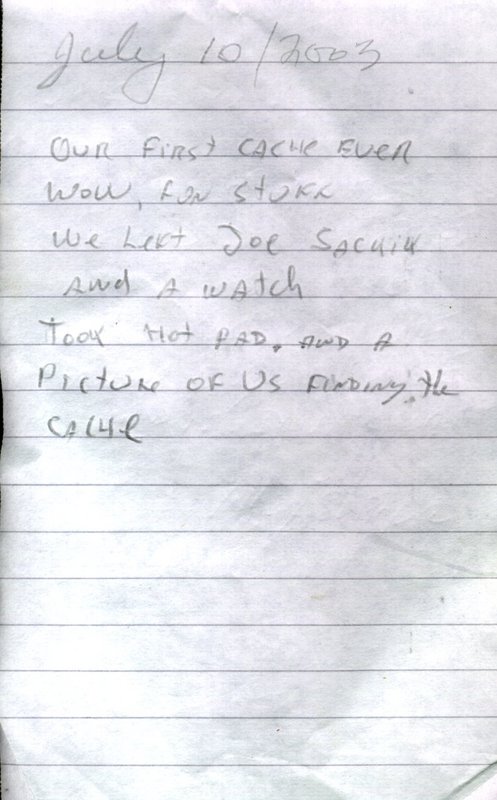 July 10/2003
OUR FIRST CACHE EVER
WOW, FUN STUFF
We Left Joe SACKIK
AND A WATCH
TOOK Hot PAD, AND A
PICTURE OF US FINDING the
CACHE